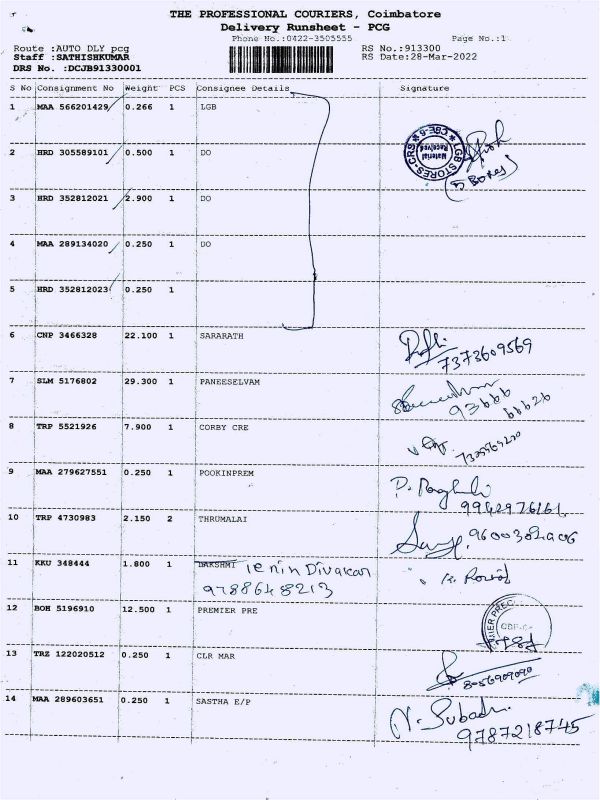 THE PROFESSIONAL COURIERS, Coimbatore
Delivery Runsheet - PCG
Phone No.:0422-3505555 Page No.:1
Route :AUTO DLY pcg RS No.:913300
Staff :SATHISHKUMAR RS Date:28-Mar-2022
DRS No. :DCJB91330001
S No Consignment No Weight PCS Consignee Details Signature
1 MAA 566201429 0.266 1 LGB
LGB STORES-CRS CBE-6
Material Received
2 HRD 305589101 0.500 1 DO
(5 Boxes)
3 HRD 352812021 2.900 1 DO
4 MAA 289134020 0.250 1 DO
5 HRD 352812023 0.250 1
6 CNP 3466328 22.100 1 SARARATH
7373609569
7 SLM 5176802 29.300 1 PANEESELVAM
93666 66626
8 TRP 5521926 7.900 1 CORBY CRE
9 MAA 279627551 0.250 1 POOKINPREM
9942976161
10 TRP 4730983 2.150 2 THRUMALAI
11 KKU 348444 1.800 1 LAKSHMI lenin Divakar
9788648213
12 BOH 5196910 12.500 1 PREMIER PRE
13 TRZ 122020512 0.250 1 CLR MAR
8056909090
14 MAA 289603651 0.250 1 SASTHA E/P
N. Subadra
9787218745